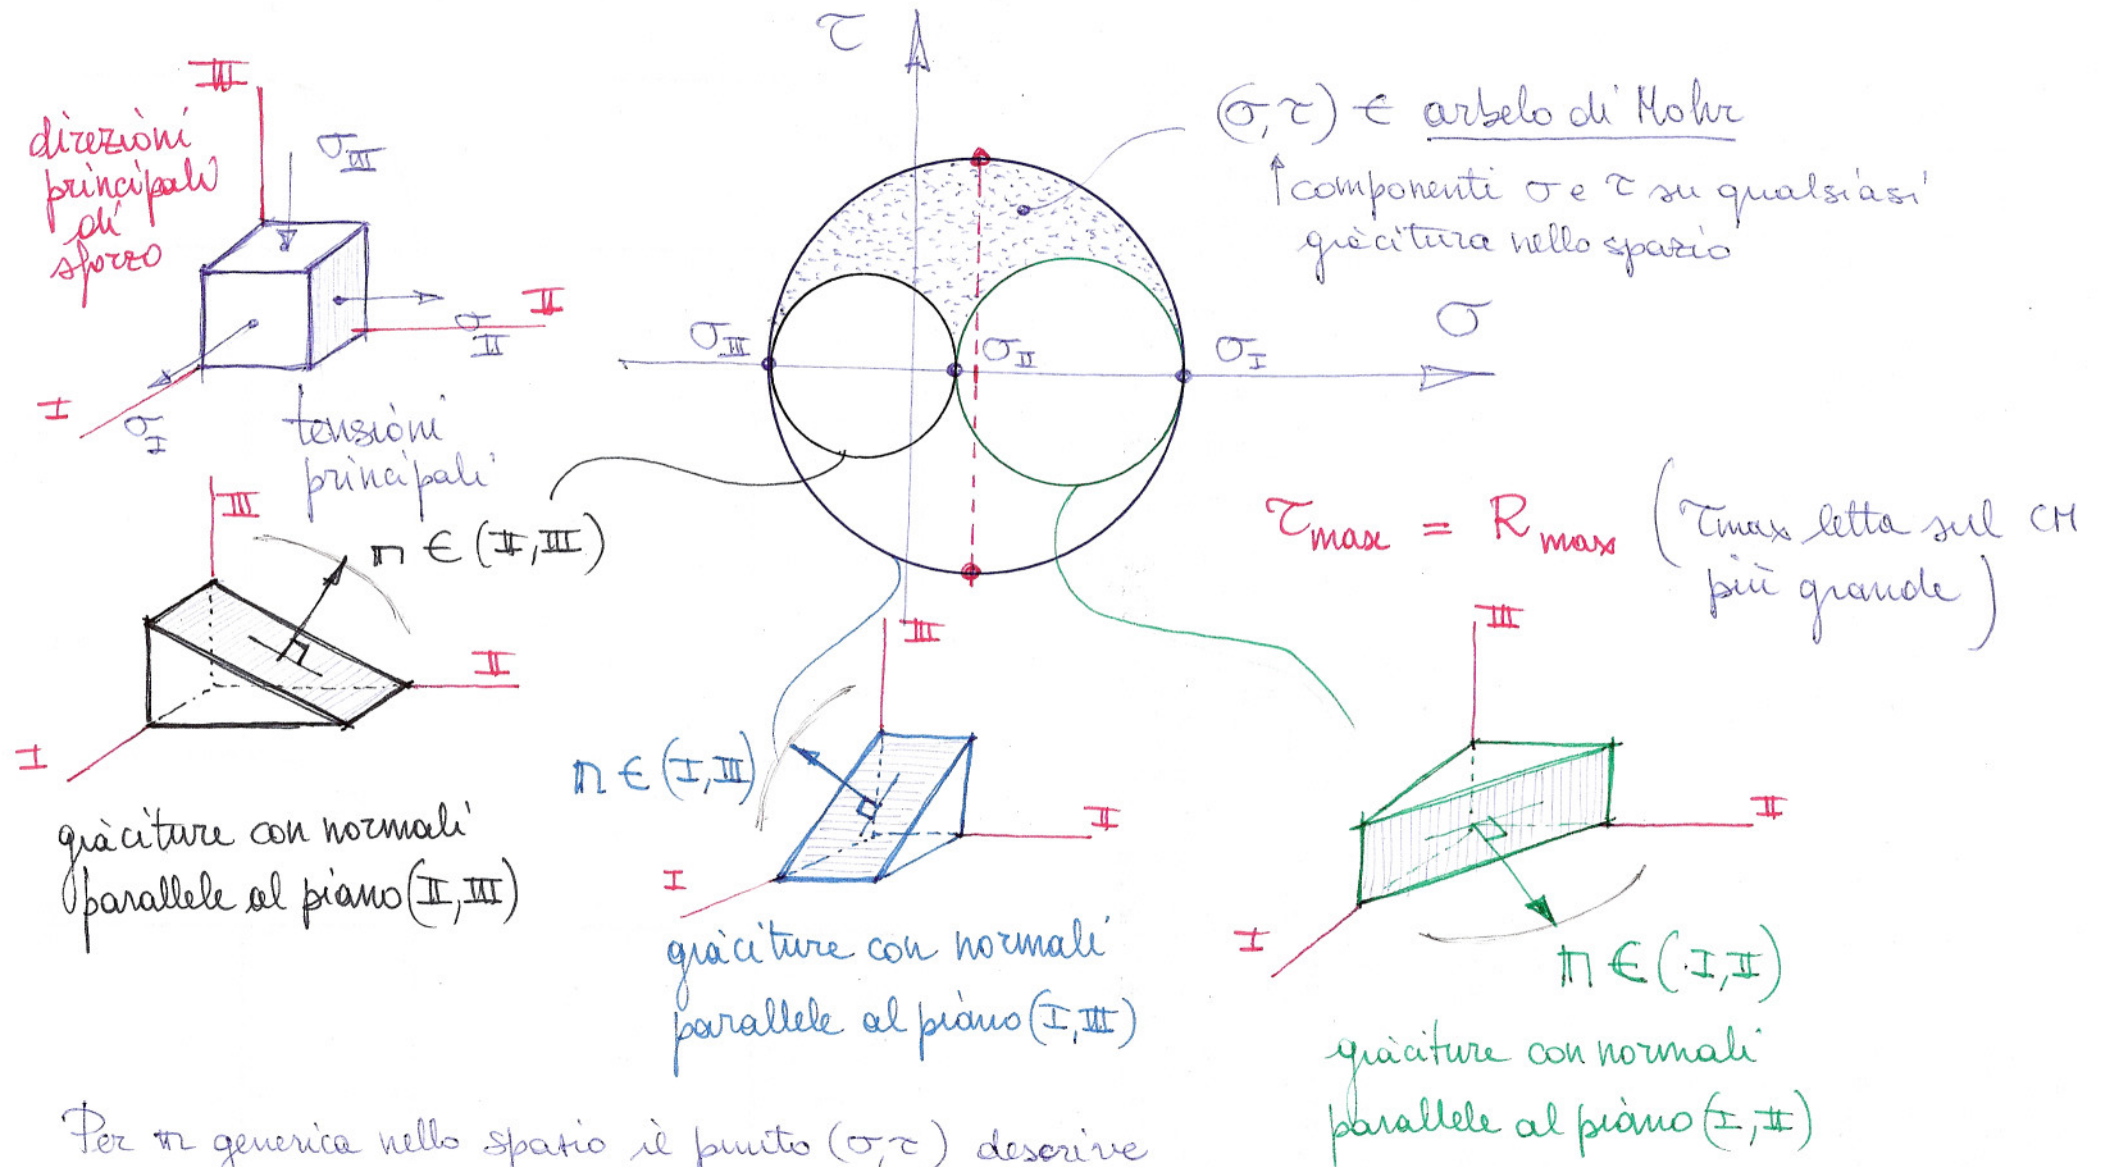 τ
III
direzioni
principali
di
sforzo
σ_III
II
σ_II
I
σ_I
tensioni
principali
(σ,τ) ∈ arbelo di Mohr
↑ componenti σ e τ su qualsiasi
giacitura nello spazio
σ_III
σ_II
σ_I
σ
τmax = Rmax (τmax letta sul CM
più grande)
III
n ∈ (II,III)
II
I
giaciture con normali
parallele al piano (II,III)
III
n ∈ (I,III)
II
I
giaciture con normali
parallele al piano (I,III)
III
II
I
n ∈ (I,II)
giaciture con normali
parallele al piano (I,II)
Per n generica nello spazio il punto (σ,τ) descrive